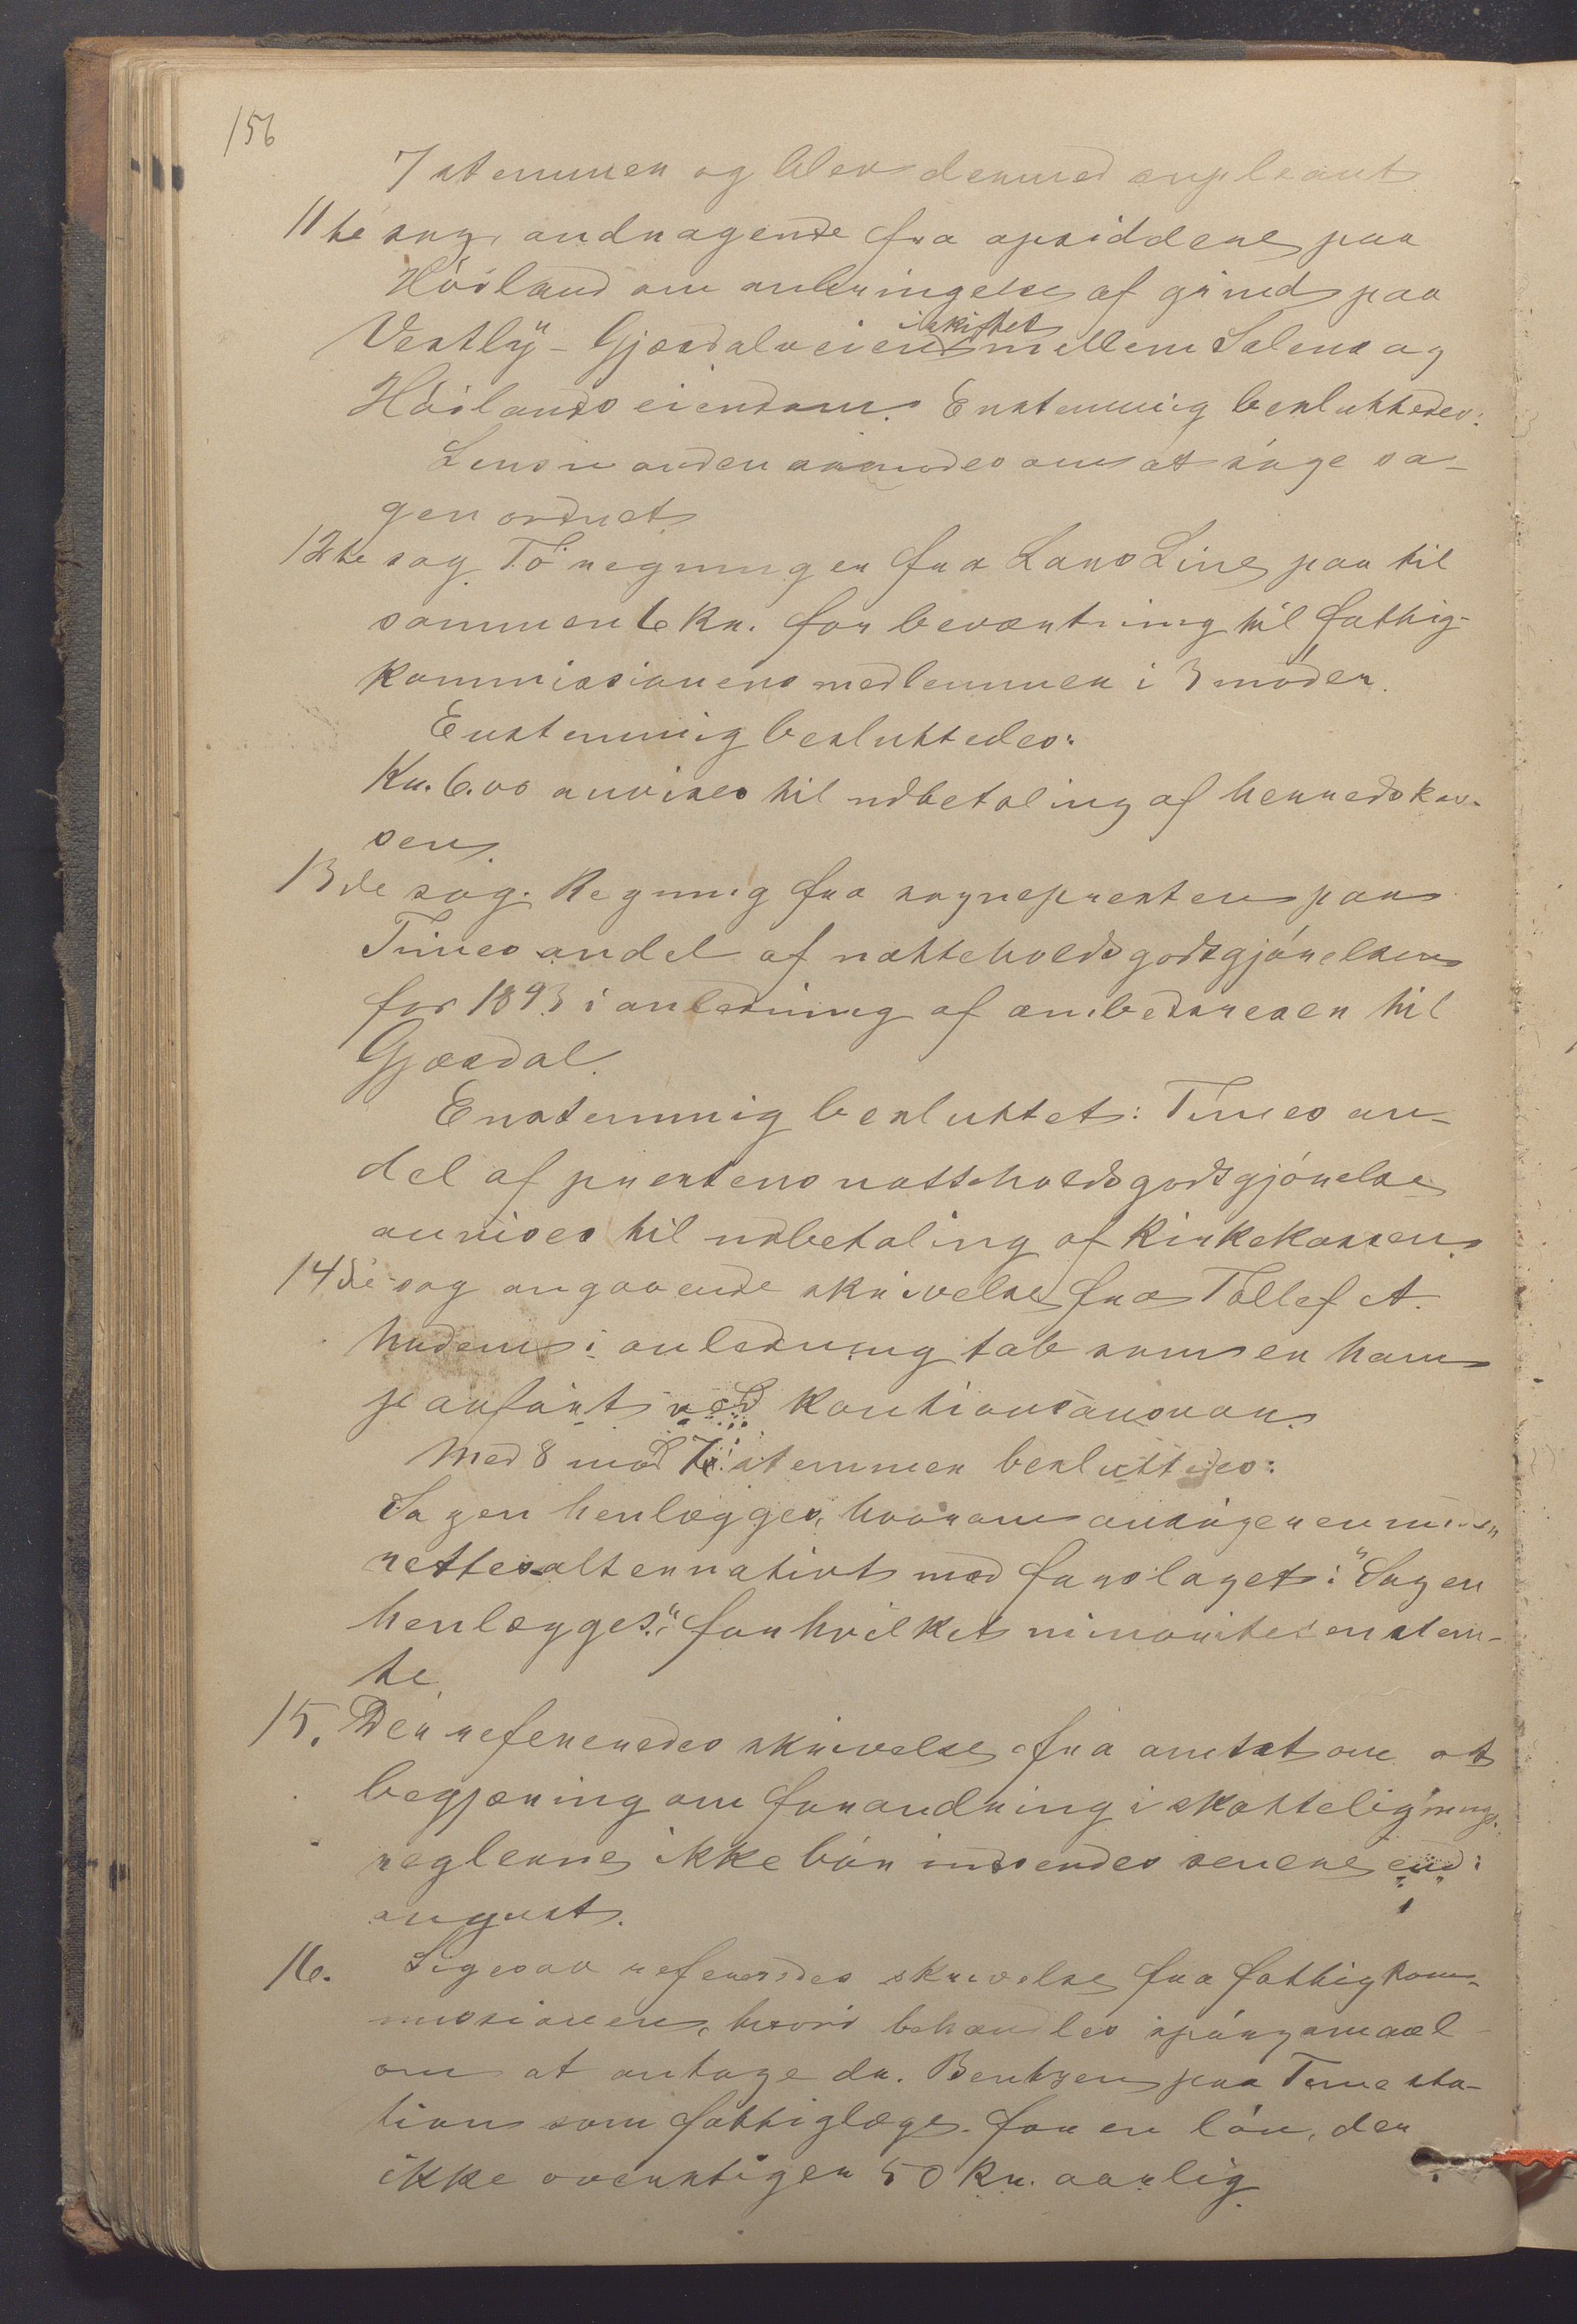 156
7 stemmer og blev dermed supleant
11te sag, andragende fra opsiddere paa
Höiland om anbringelse af grind paa
Vestly - Gjesdalveien i skiftet mellem Selena og
Höilands eiendom. Enstemmig besluttedes:
Lensmanden anmodes om at söge sa-
gen ordnet
12te sag To regninger fra Lars Line paa til
sammen 6 kr. for bevertning til fattig-
kommissionens medlemmer i 3 möder.
Enstemmig besluttedes:
Kr. 6.00 anvises til udbetaling af herredskas-
sen.
13de sag. Regning fra sognepresten paa
Times andel af natteholdsgodtgjörelsen
for 1893 i anledning af embedsreser til
Gjesdal.
Enstemmig besluttet: Times an-
del af prestens nattholdsgodtgjörelse
anvises til udbetaling af kirkekassen.
14de sag angaaende skrivelse fra Tollef A.
Undem i anledning tab som er ham
paaført ved kautionsansvar.
Med 8 mod 7 stemmer besluttedes:
Sagen henlægges, hvorom ansögeren under-
rettes alternativt mod forslaget: "Sagen
henlægges." for hvilket minoriteten stem-
te.
15. Der refereredes skrivelse fra amtet om at
begjæring om forandring i skattelignings-
reglerne ikke bör indsendes senere end i
august.
16. Ligesaa refereredes skrivelse fra fattigkom-
missionen, hvori behandles spörgsmaal
om at antage dr. Bentzen paa Time sta-
tion som fattiglæge for en lön, der
ikke overstiger 50 kr. aarlig.